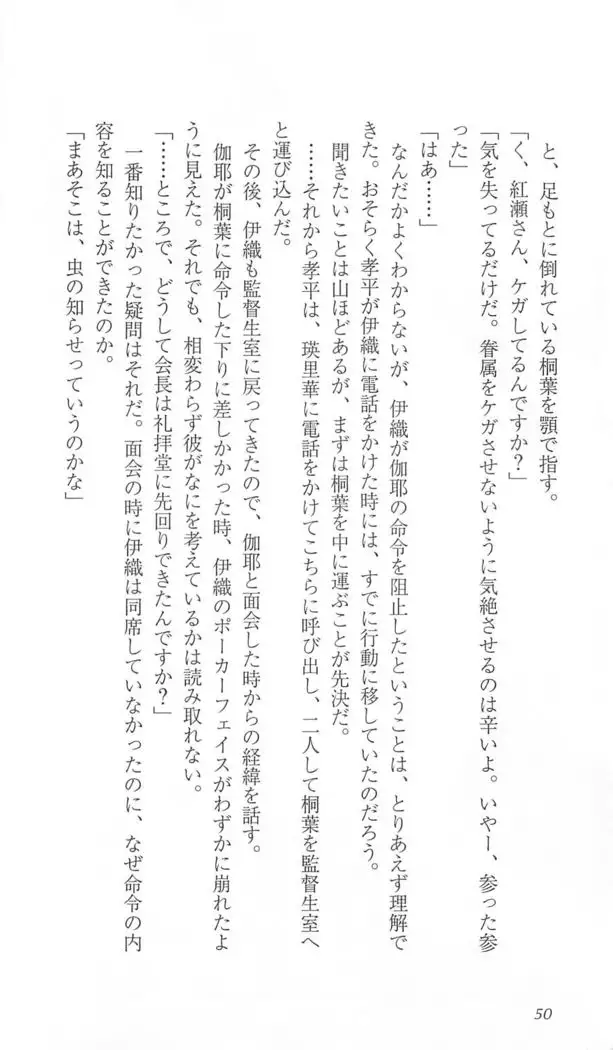 と、足もとに倒れている桐葉を顎で指す。
「く、紅瀬さん、ケガしてるんですか？」
「気を失ってるだけだ。眷属をケガさせないように気絶させるのは辛いよ。いやー、参った参
った」
「はあ……」
なんだかよくわからないが、伊織が伽耶の命令を阻止したということは、とりあえず理解で
きた。おそらく孝平が伊織に電話をかけた時には、すでに行動に移していたのだろう。
聞きたいことは山ほどあるが、まずは桐葉を中に運ぶことが先決だ。
……それから孝平は、瑛里華に電話をかけてこちらに呼び出し、二人して桐葉を監督生室へ
と運び込んだ。
その後、伊織も監督生室に戻ってきたので、伽耶と面会した時からの経緯を話す。
伽耶が桐葉に命令した下りに差しかかった時、伊織のポーカーフェイスがわずかに崩れたよ
うに見えた。それでも、相変わらず彼がなにを考えているかは読み取れない。
「……ところで、どうして会長は礼拝堂に先回りできたんですか？」
一番知りたかった疑問はそれだ。面会の時に伊織は同席していなかったのに、なぜ命令の内
容を知ることができたのか。
「まあそこは、虫の知らせっていうのかな」
50